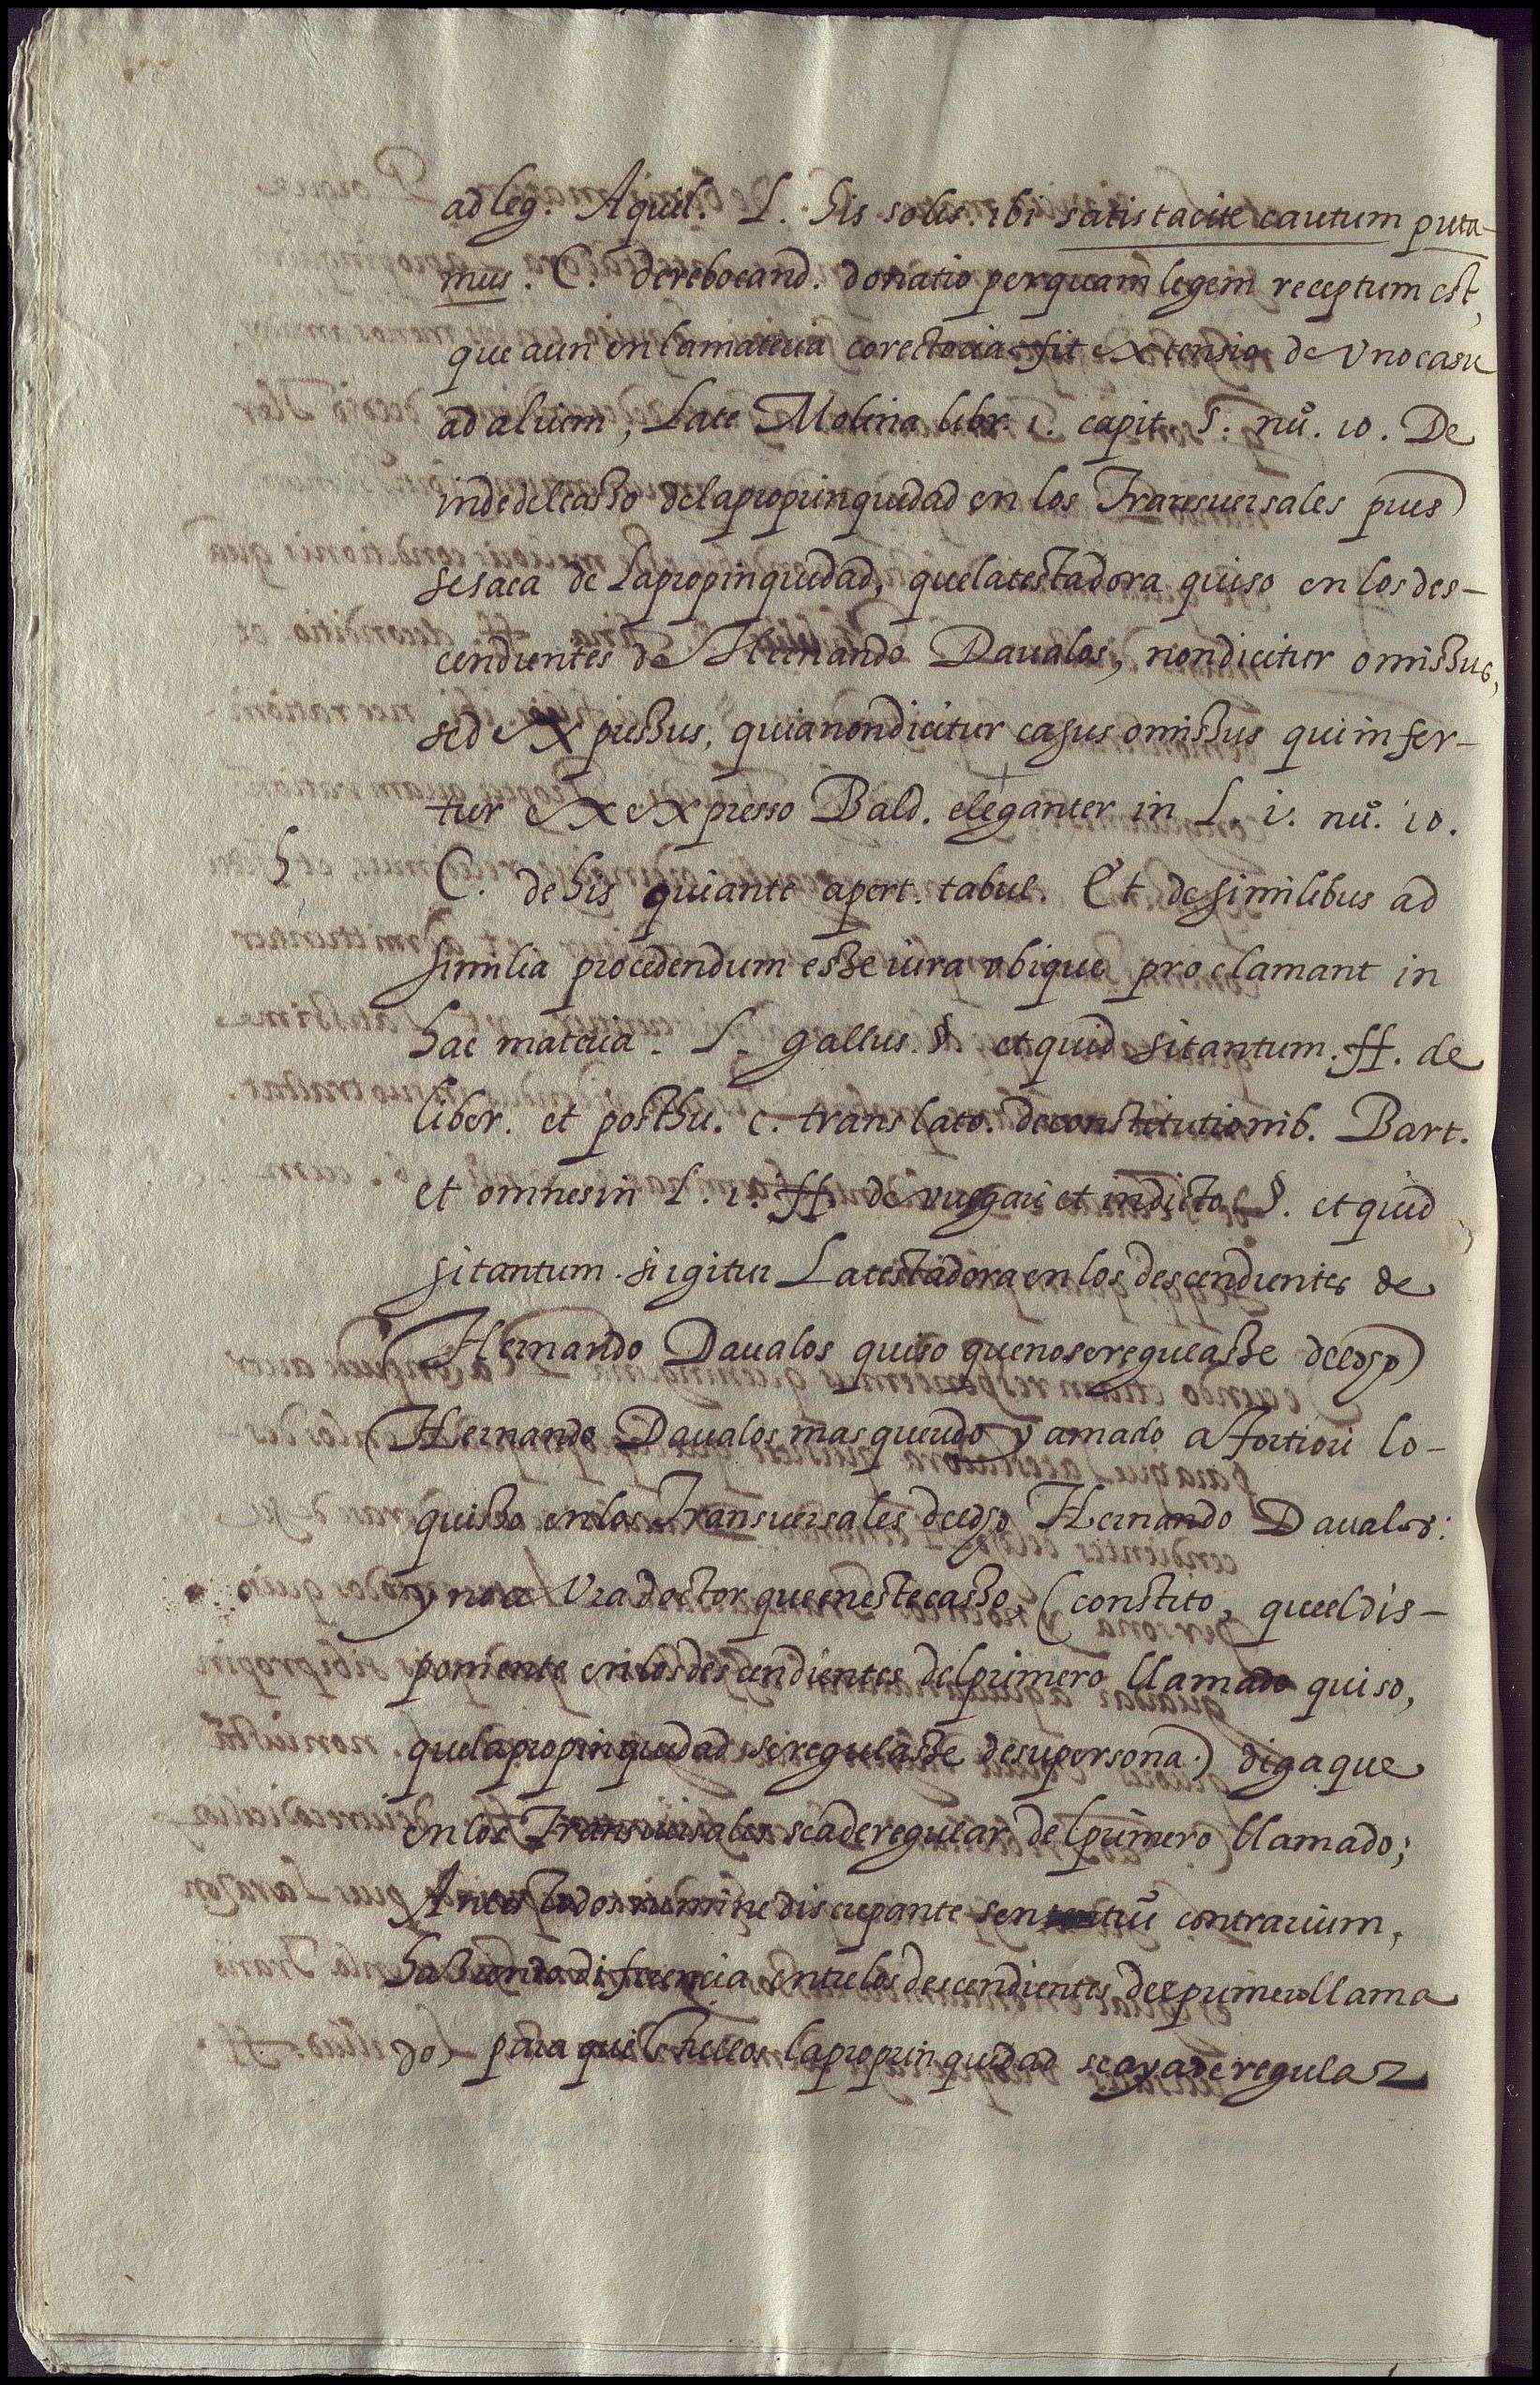 ad leg. Aquil. L. his solis. ibi satis tacite cautum puta-
mus. C. de rebocand. donatio per quam legem receptum est,
que aun en la materia corectoria fit extensio de uno casu
ad alium, Late Molina libr. 1. capit. 5. nu. 10. De
inde del casso de la propinquidad en los Transuersales pues
se saca de La propinquidad, que la testadora quiso en los des-
cendientes de Hernando Daualos, non dicitur omissus,
sed expressus, quia non dicitur casus omissus qui infer-
tur ex expresso Bald. eleganter in L. 1. nu. 10.
h C. de his qui ante apert. tabul. Et de similibus ad
similia procedendum esse iura ubique proclamant in
hac materia. L. gallus. §. et quid si tantum. ff. de
liber. et posthu. c. translato. de constitutionib. Bart.
et omnes in L. 1. ff. de vulgari et in dicto §. et quid
si tantum. si igitur La testadora en los descendientes de
Hernando Daualos quiso que no se regulasse del dho
Hernando Daualos mas querido y amado a fortiori lo
quisso en los Transuersales del dho Hernando Daualos:
y no a Vra doctor que en este casso, (constito, que el dis-
ponente en los descendientes del primero llamado quiso,
que la propinquidad se regulasse de su persona.) diga que
en los Transuersales se a de regular del primero llamado;
Antes todos nemine discrepante contrarium,
habiendo diferencia entre los descendientes del primero llama
do, para que la propinquidad se aya de regular